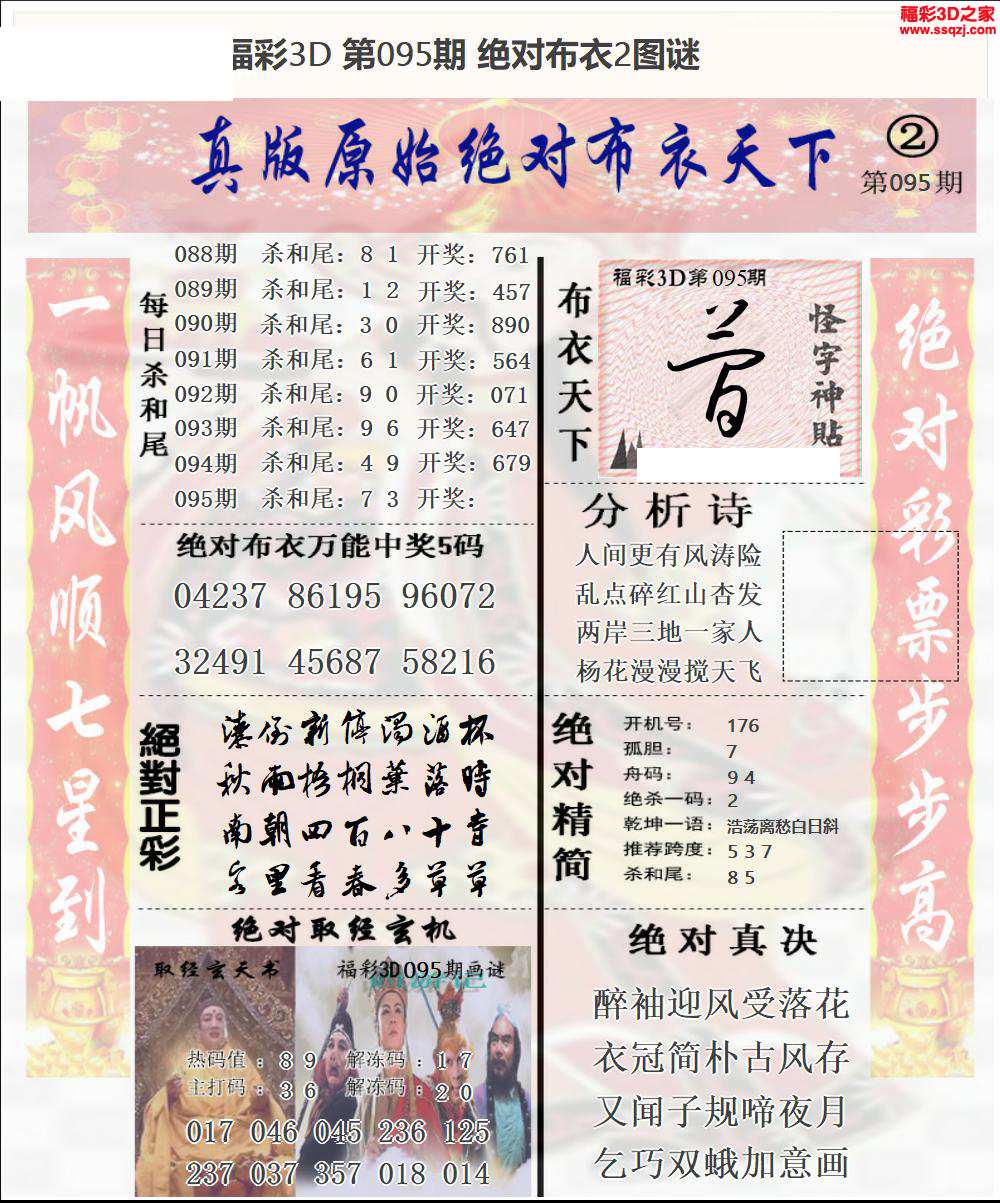 福彩3D之家
www.ssqzj.com
福彩3D 第095期 绝对布衣2图谜
真版原始绝对布衣天下
②
第095期
一帆风顺七星到
每日杀和尾
088期 杀和尾：8 1 开奖：761
089期 杀和尾：1 2 开奖：457
090期 杀和尾：3 0 开奖：890
091期 杀和尾：6 1 开奖：564
092期 杀和尾：9 0 开奖：071
093期 杀和尾：9 6 开奖：647
094期 杀和尾：4 9 开奖：679
095期 杀和尾：7 3 开奖：
绝对布衣万能中奖5码
04237 86195 96072
32491 45687 58216
絕對正彩
潦倒新停濁酒杯
秋雨梧桐葉落時
南朝四百八十寺
客里青春多草草
绝对取经玄机
取经玄天书
福彩3D095期画谜
热码值：8 9 解冻码：1 7
主打码：3 6 解冻码：2 0
017 046 045 236 125
237 037 357 018 014
布衣天下
福彩3D第095期
怪字神贴
分析诗
人间更有风涛险
乱点碎红山杏发
两岸三地一家人
杨花漫漫搅天飞
绝对精简
开机号：176
孤胆：7
舟码：9 4
绝杀一码：2
乾坤一语：浩荡离愁白日斜
推荐跨度：5 3 7
杀和尾：8 5
绝对真决
醉袖迎风受落花
衣冠简朴古风存
又闻子规啼夜月
乞巧双蛾加意画
绝对彩票步步高